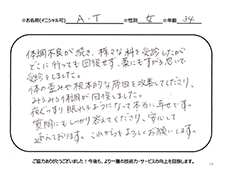 ☆お名前(イニシャル可) A・T ☆性別 女 ☆年齢 34
体調不良が続き、様々な科を受診したが
どこに行っても回復せず、藁にもすがる思いで
受診をしました。
体の歪みや根本的な原因を改善してくださり、
みるみる体調が回復しました。
夜ぐっすり眠れるようになって本当に幸せです。
質問にもしっかり答えてくださり、安心して
通えております。これからもよろしくお願いします。
ご協力ありがとうございました！今後も、より一層の技術力・サービスの向上を目指します。